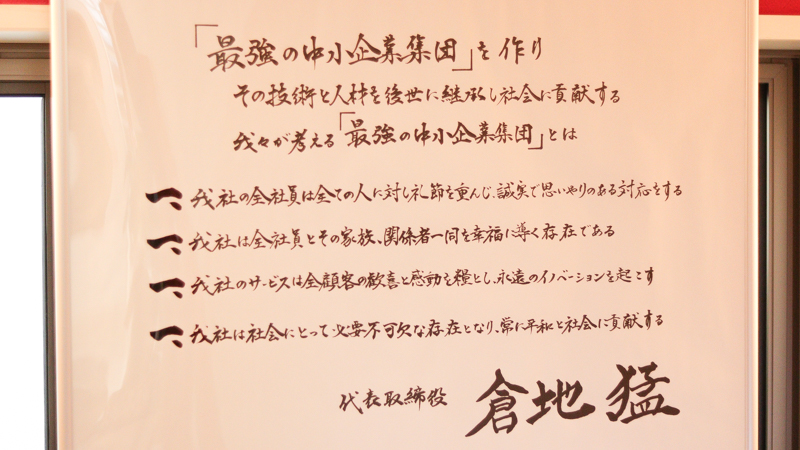 「最強の中小企業集団」を作り
その技術と人材を後世に継承し社会に貢献する
我々が考える「最強の中小企業集団」とは
一、我社の全社員は全ての人に対し礼節を重んじ、誠実で思いやりのある対応をする
一、我社は全社員とその家族、関係者一同を幸福に導く存在である
一、我社のサービスは全顧客の歓喜と感動を糧とし、永遠のイノベーションを起こす
一、我社は社会にとって必要不可欠な存在となり、常に平和と社会に貢献する
代表取締役 倉地 猛